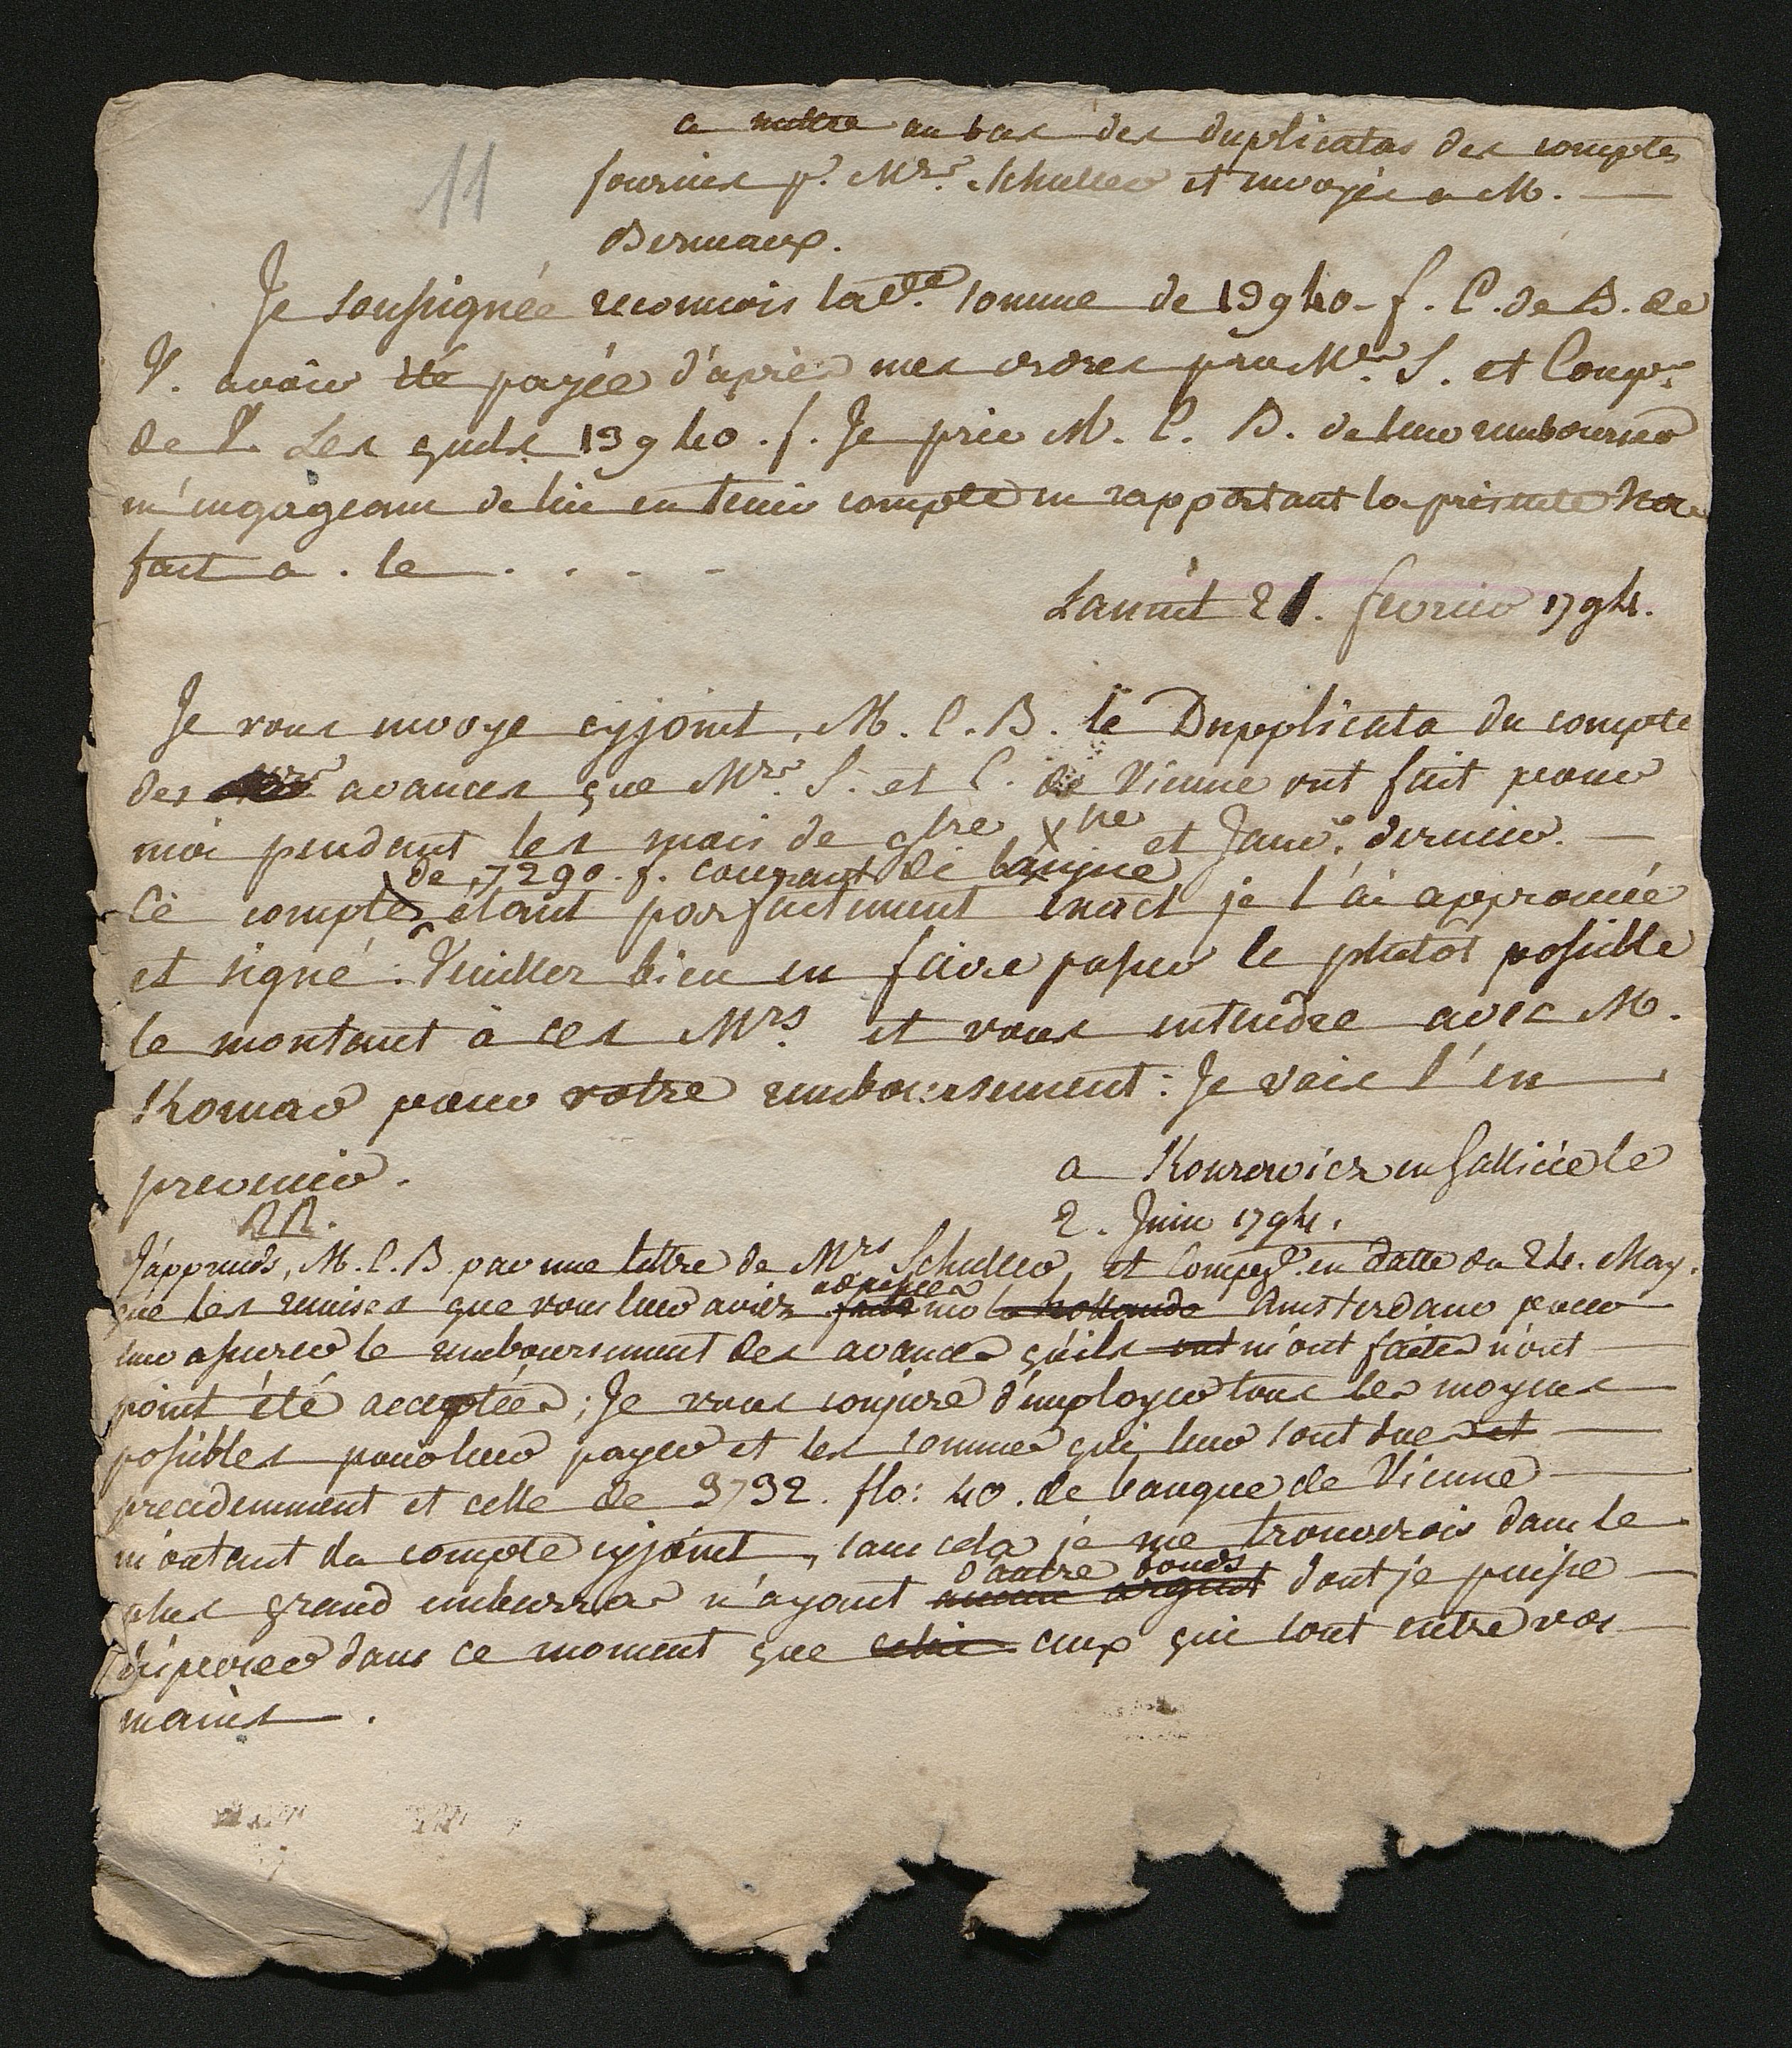 11
a mettre au bas des duplicatas des comptes
fournies pr. Mrs. Schuller et envoyés a M.
Bernaux.
Je soussignée reconnois lad.te somme de 13940 - f. C. de B. de
V. avoir été payée d'après mes ordres par Mrs. S. et Comp.
de V. Les quels 13940. f. Je prie M. C. B. de leur rembourser
m'engageant de lui en tenir compte en rapportant la presente
fait a . le . . . .
Lanint 21. fevrier 1794.
Je vous envoye cyjoint, M. C. B. le Dupplicata du compte
des avances que Mrs. S. et C. de Vienne ont fait pour
moi pendant les mois de 9bre Xbre et Janv. dernier.
de 7290. f. courant de banque
Ce compte étant parfaitement exact je l'ai approuvée
et signé. Veuillez bien en faire passer le plutôt possible
le montant à ces Mrs. et vous entendre avec M.
Komar pour votre remboursement: Je vais l'en
prevenir.
a Kourowicz en Gallicie le
2. Juin 1794.
RR.
J'apprends, M. C. B. par une lettre de Mrs Schuller, et Comp. en datte du 24. May.
que les remises que vous leur aviez
adressées
faite sur la hollande Amsterdam pour
leur assurer le remboursement des avances qu'ils ont m'ont faites n'ont
point été acceptées; Je vous conjure d'employer tous les moyens
possibles pour leur payer et les sommes qui leur sont due et
precedemment et celle de 3732. flo: 40. de banque de Vienne
montant du compte cyjoint, sans cela je me trouverois dans le
d'autre fonds
plus grand embarras n'ayant aucun argent dont je puisse
disposer dans ce moment que celui ceux qui sont entre vos
mains.